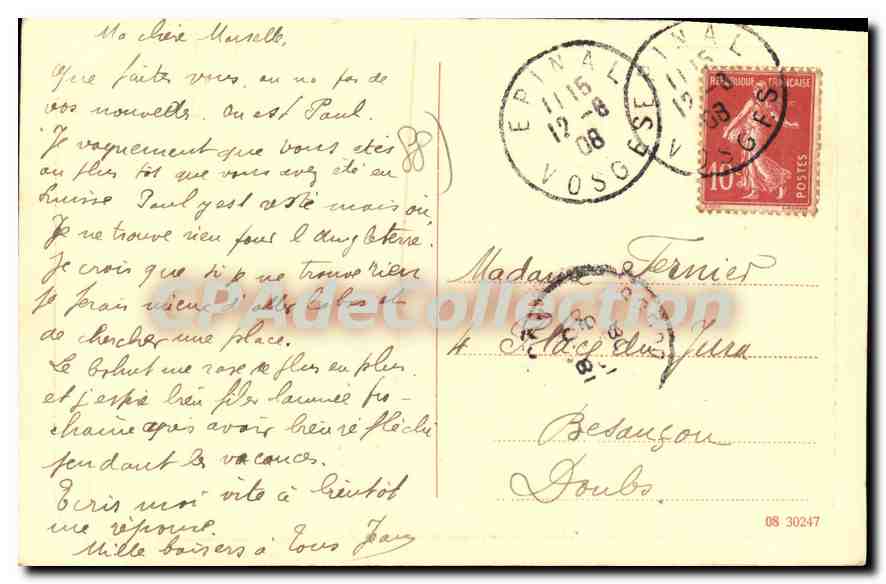 Ma chère Marselle,
Que faites vous, on na pas de
vos nouvelles. Ou est Paul.
J'ai vaguement que vous etes
au plus tot que vous avez été en
Suisse Paul y est resté mais ou
Je ne trouve rien pour l'Angleterre.
Je crois que si je ne trouve rien
je ferais mieux d'aller labas et
de chercher une place.
Le bahut me rase de plus en plus
et j'espère bien filer l'année pro-
chaine après avoir bien réfléchi
pendant les vacances.
Ecris moi vite à bientot
une réponse.
Mille baisers à tous Jean
EPINAL
11 15
12 -8
08
VOSGES
EPINAL
11 15
12 -8
08
VOSGES
REPUBLIQUE FRANÇAISE
10
POSTES
Madame Fernier
4 Place du Jura
Besançon
Doubs
CPAdeCollection
08 30247